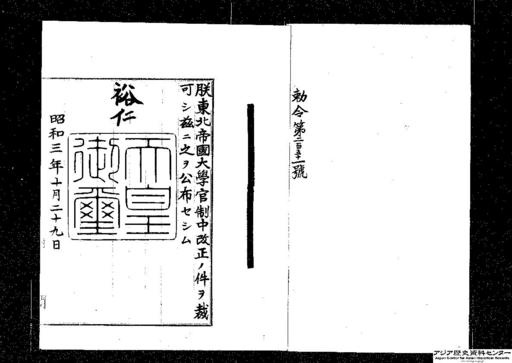 勅令第二百五十一號
朕東北帝國大學官制中改正ノ件ヲ裁
可シ茲ニ之ヲ公布セシム
裕仁
天皇御璽
昭和三年十月二十九日
アジア歴史資料センター
Japan Center for Asian Historical Records